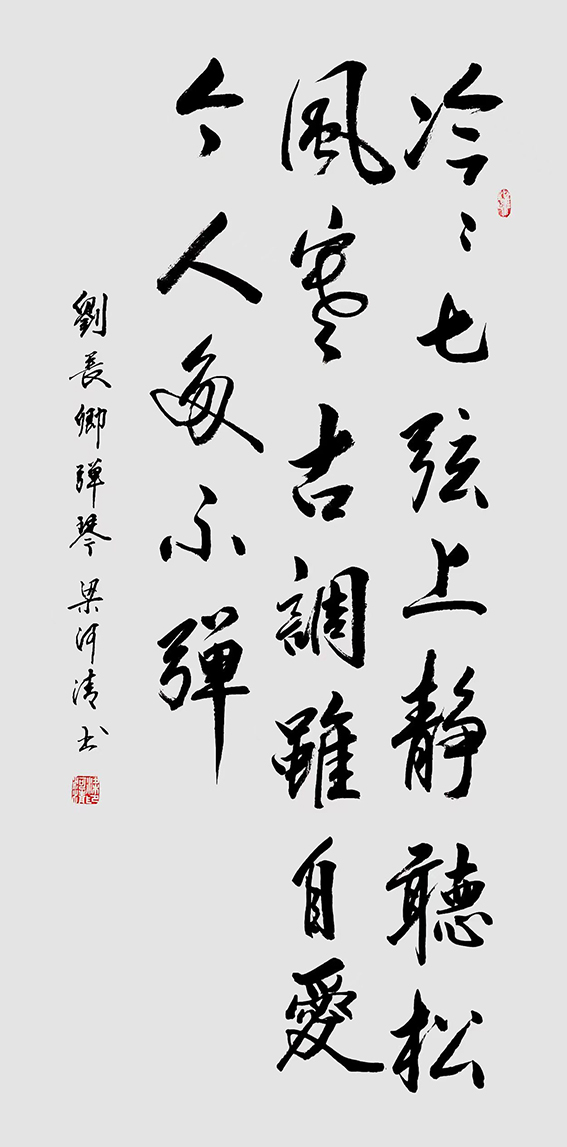 冷〻七弦上静聽松
風寒古調雖自愛
今人多不彈
劉長卿彈琴 梁河清书